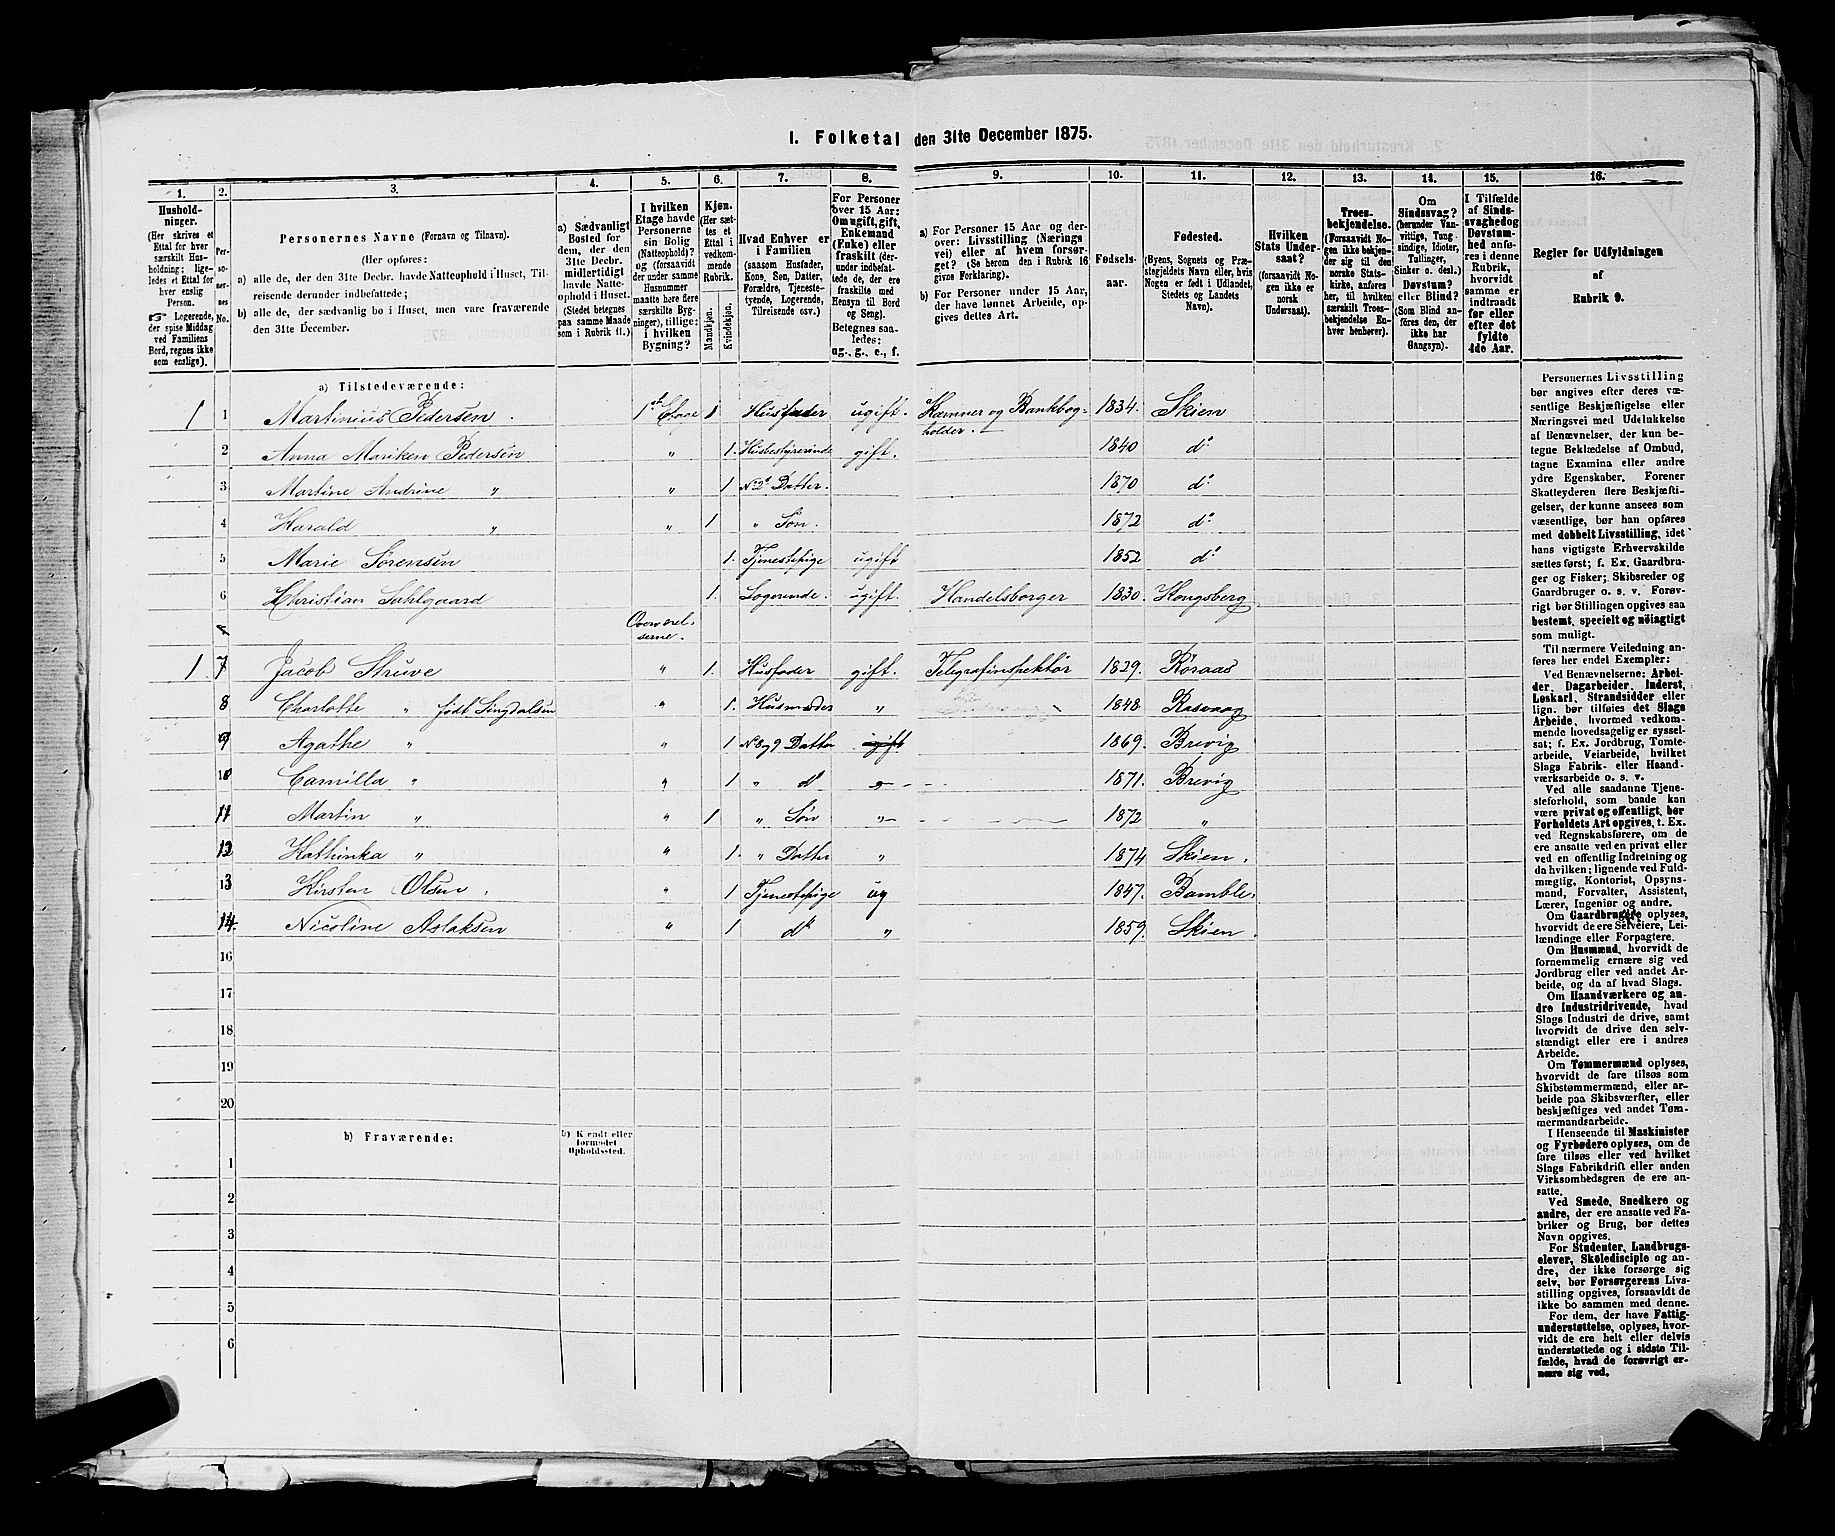 I. Folketal den 31te December 1875.
1. 2. 3. 4. 5. 6. 7. 8. 9. 10. 11. 12. 13. 14. 15. 16.
Hushold-
ninger.
(Her skrives et
Ettal for hver
særskilt Hus-
holdning; lige-
ledes et Ettal for
hver enslig
Person.
☞ Logerende,
der spise Middag
ved Familiens
Bord, regnes ikke
som enslige).
Per-
so-
ner-
nes
No.
Personernes Navne (Fornavn og Tilnavn).
(Her opføres:
a) alle de, der den 31te Decbr. havde Natteophold i Huset, Til-
reisende derunder indbefattede;
b) alle de, der sædvanlig bo i Huset, men vare fraværende
den 31te December.
a) Sædvanligt
Bosted for
dem, der den
31te Decbr.
midlertidigt
havde Natte-
ophold i Huset.
(Stedet betegnes
paa samme Maade
som i Rubrik 11.)
I hvilken
Etage havde
Personerne
sin Bolig
(Natteophold)?
og (forsaavidt
der under samme
Husnummer
maatte høre flere
særskilte Byg-
ninger), tillige:
i hvilken
Bygning?
Kjøn.
(Her sæt-
tes et
Ettal i
vedkom-
mende
Rubrik.
Mandkjøn.
Kvindekjøn.
Hvad Enhver er
i Familien
(saasom Husfader,
Kone, Søn, Datter,
Forældre, Tjeneste-
tyende, Logerende,
Tilreisende osv.)
For Personer
over 15 Aar:
Om ugift, gift,
Enkemand
(Enke) eller
fraskilt (der-
under indbefat-
tede de, der ere
fraskilte med
Hensyn til Bord
og Seng).
Betegnes saa-
ledes:
ug., g., e., f.
a) For Personer 15 Aar og der-
over: Livsstilling (Nærings
vei) eller af hvem forsør-
get? (Se herom den i Rubrik 16
givne Forklaring).
b) For Personer under 15 Aar,
der have lønnet Arbeide, op-
gives dettes Art.
Fødsels-
aar.
Fødested.
(Byens, Sognets og Præ-
stegjeldets Navn eller, hvis
Nogen er født i Udlandet,
Stedets og Landets
Navn).
Hvilken
Stats Under-
saat?
(forsaavidt No-
gen ikke er
norsk
Undersaat).
Troes-
bekjendelse.
(Forsaavidt No-
gen ikke bekjen-
der sig til den
norske Stats-
kirke, anføres
her, til hvilken
særskilt Troes-
bekjendelse En-
hver henhører).
Om
Sindssvag?
(herunder Van-
vittige, Tung
sindige, Idioter,
Tullinger,
Sinker o. desl.)
Døvstum?
eller Blind?
(Som Blind an-
føres den, der
ikke har
Gangsyn).
I Tilfælde
af Sinds-
svaghed og
Døvstum-
hed anfø-
res i denne
Rubrik,
hvorvidt
samme er
indtraadt
før eller
efter det
fyldte
4de Aar.
Regler for Udfyldningen
af
Rubrik 9.
a) Tilstedeværende:
1 1 Martinius Pedersen. 1st Etage 1 Husfader ugift. Kæmner og Bankbog-
holder. 1834. Skien
2 Anna Mariken Pedersen " 1. Husbestyrerinde gift. 1840 do
3 Martine Andrine " " 1 No 2s Datter. 1870 do
4 Harald " " 1 " Søn. 1872 do
5 Marie Sørensen 1. Tjenestepige ugift 1852 do
6 Christian Sahlgaard 1. Logerende. ugift. Handelsborger 1830. Kongsberg
Overværel-
serne.
1. 7 Jacob Struve " 1. Husfader gift. Telegrafinspektør 1829. Røraas
8 Charlotte " født Lingdalsen " 1. Husmoder " 1848. Rasvaag
9 Agathe " " 1 No 8 og 9 Datter ugift 1869. Brevig
10 Camilla " " 1 " do 1871. Brevig
11 Martin " " 1 " Søn " 1872 "
12 Kathinka " " 1. " Datter " 1874 Skien.
13 Kirsten Olsen. " 1 Tjenestepige ug 1847. Bamble.
14. Nicoline Aslaksen " 1 do " 1859. Skien.
16
17
18
19
20
b) Fraværende:
b) Kjendt eller
formodet
Opholdssted.
1
2
3
4
5
6
Personernes Livsstilling
bør angives efter deres væ-
sentlige Beskjæftigelse eller
Næringsvei med Udelukkelse
af Benævnelser, der kun be-
tegne Beklædelse af Ombud,
tagne Examina eller andre
ydre Egenskaber. Forener
Skatteyderen flere Beskjæfti-
gelser, der kunne ansees som
væsentlige, bør han opføres
med dobbelt Livsstilling, idet
hans vigtigste Erhvervskilde
sættes først; f. Ex. Gaardbru-
ger og Fisker; Skibsreder og
Gaardbruger o. s. v. Forøv-
rigt bør Stillingen opgives saa
bestemt, specielt og nöiagtigt
som muligt.
Til nærmere Veiledning an-
føres her endel Exempler:
Ved Benævnelserne: Arbei-
der, Dagarbeider, Inderst,
Løskarl, Strandsidder eller
lign. bør tilføies det Slags
Arbeide, hvormed vedkom-
mende hovedsagelig er syssel-
sat; f. Ex. Jordbrug, Tomte-
arbeide, Veiarbeide, hvilket
Slags Fabrik- eller Haand-
værksarbeide o. s. v.
Ved alle saadanne Tjene-
steforhold, som baade kan
være privat og offentligt, bør
Forholdets Art opgives, t. Ex.
ved Regnskabsførere, om de
ere ansatte ved en privat eller
ved en offentlig Indretning og
da hvilken; lignende ved Fuld-
mægtig, Kontorist, Opsyns-
mand, Forvalter, Assistent,
Lærer, Ingeniør og andre.
Om Gaardbrugere oplyses,
hvorvidt de ere Selveiere, Lei-
lændinge eller Forpagtere.
Om Husmænd, hvorvidt de
fornemmelig ernære sig ved
Jordbrug eller ved andet Ar-
beide, og da af hvad Slags.
Om Haandværkere og an-
dre Industridrivende, hvad
Slags Industri de drive, samt
hvorvidt de drive den selv-
stændigt eller ere i andres
Arbeide.
Om Tømmermænd oplyses,
hvorvidt de fare tilsøs som
Skibstømmermænd, eller ar-
beide paa Skibsværfter, eller
beskjæftiges ved andet Tøm-
mermandsarbeide.
I Henseende til Maskinister
og Fyrbødere oplyses, om de
fare tilsøs eller ved hvilket
Slags Fabrikdrift eller anden
Virksomhedsgren de ere an-
satte.
Ved Smede, Snedkere og
andre, der ere ansatte ved Fa-
briker og Brug, bør dettes
Navn opgives.
For Studenter, Landbrugs-
elever, Skoledisciple og an-
dre, der ikke forsørge sig
selv, bør Forsørgerens Livs-
stilling opgives, forsaavidt de
ikke bo sammen med denne.
For dem, der have Fattig-
understøttelse, oplyses, hvor-
vidt de ere helt eller delvis
understøttede og i sidste Til-
fælde, hvad de forøvrigt er-
nære sig ved.